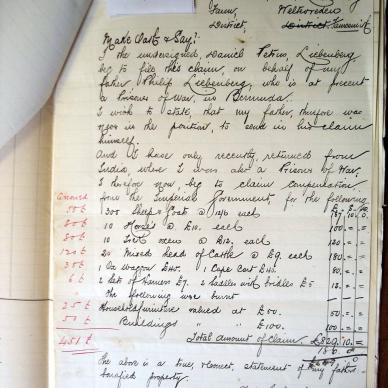 Farm, Weltevreden
District.
Make Oath & Say?
I the undersigned, Daniel Petrus, Liebenberg,
beg to file this claim, on behalf of my
father Philip Liebenberg, who is at present
a Prisoner of War, in Bermuda.
I wish to state, that my father, therefore was
never in the position, to send in his claim
himself.
And I have only recently, returned from
India, where I was also a Prisoner of War.
I therefore now, beg to claim compensation.
from the Imperial Government, for the following
300 Sheep & Goats @ 12/6 each
80 £ 10 Horses @ £10. each 100 = =
80 £ 10 Trek oxen @ £12. each 120 = =
120 £ 20 Mixed head of Cattle @ £9. each 180 = =
30 £ 1 Ox wagon £40. 1 Cape Cart £40. 80 = =
6 £ 2 Sets of Harness £7. 2 Saddles with bridles £5
The following was burnt
25 £ Household furniture valued at £50. 50 = =
50 £ Buildings " " £100. 100 = =
Total Amount of Claim £829. 10. =
The above is a true, correct, statement of my fathers
property.